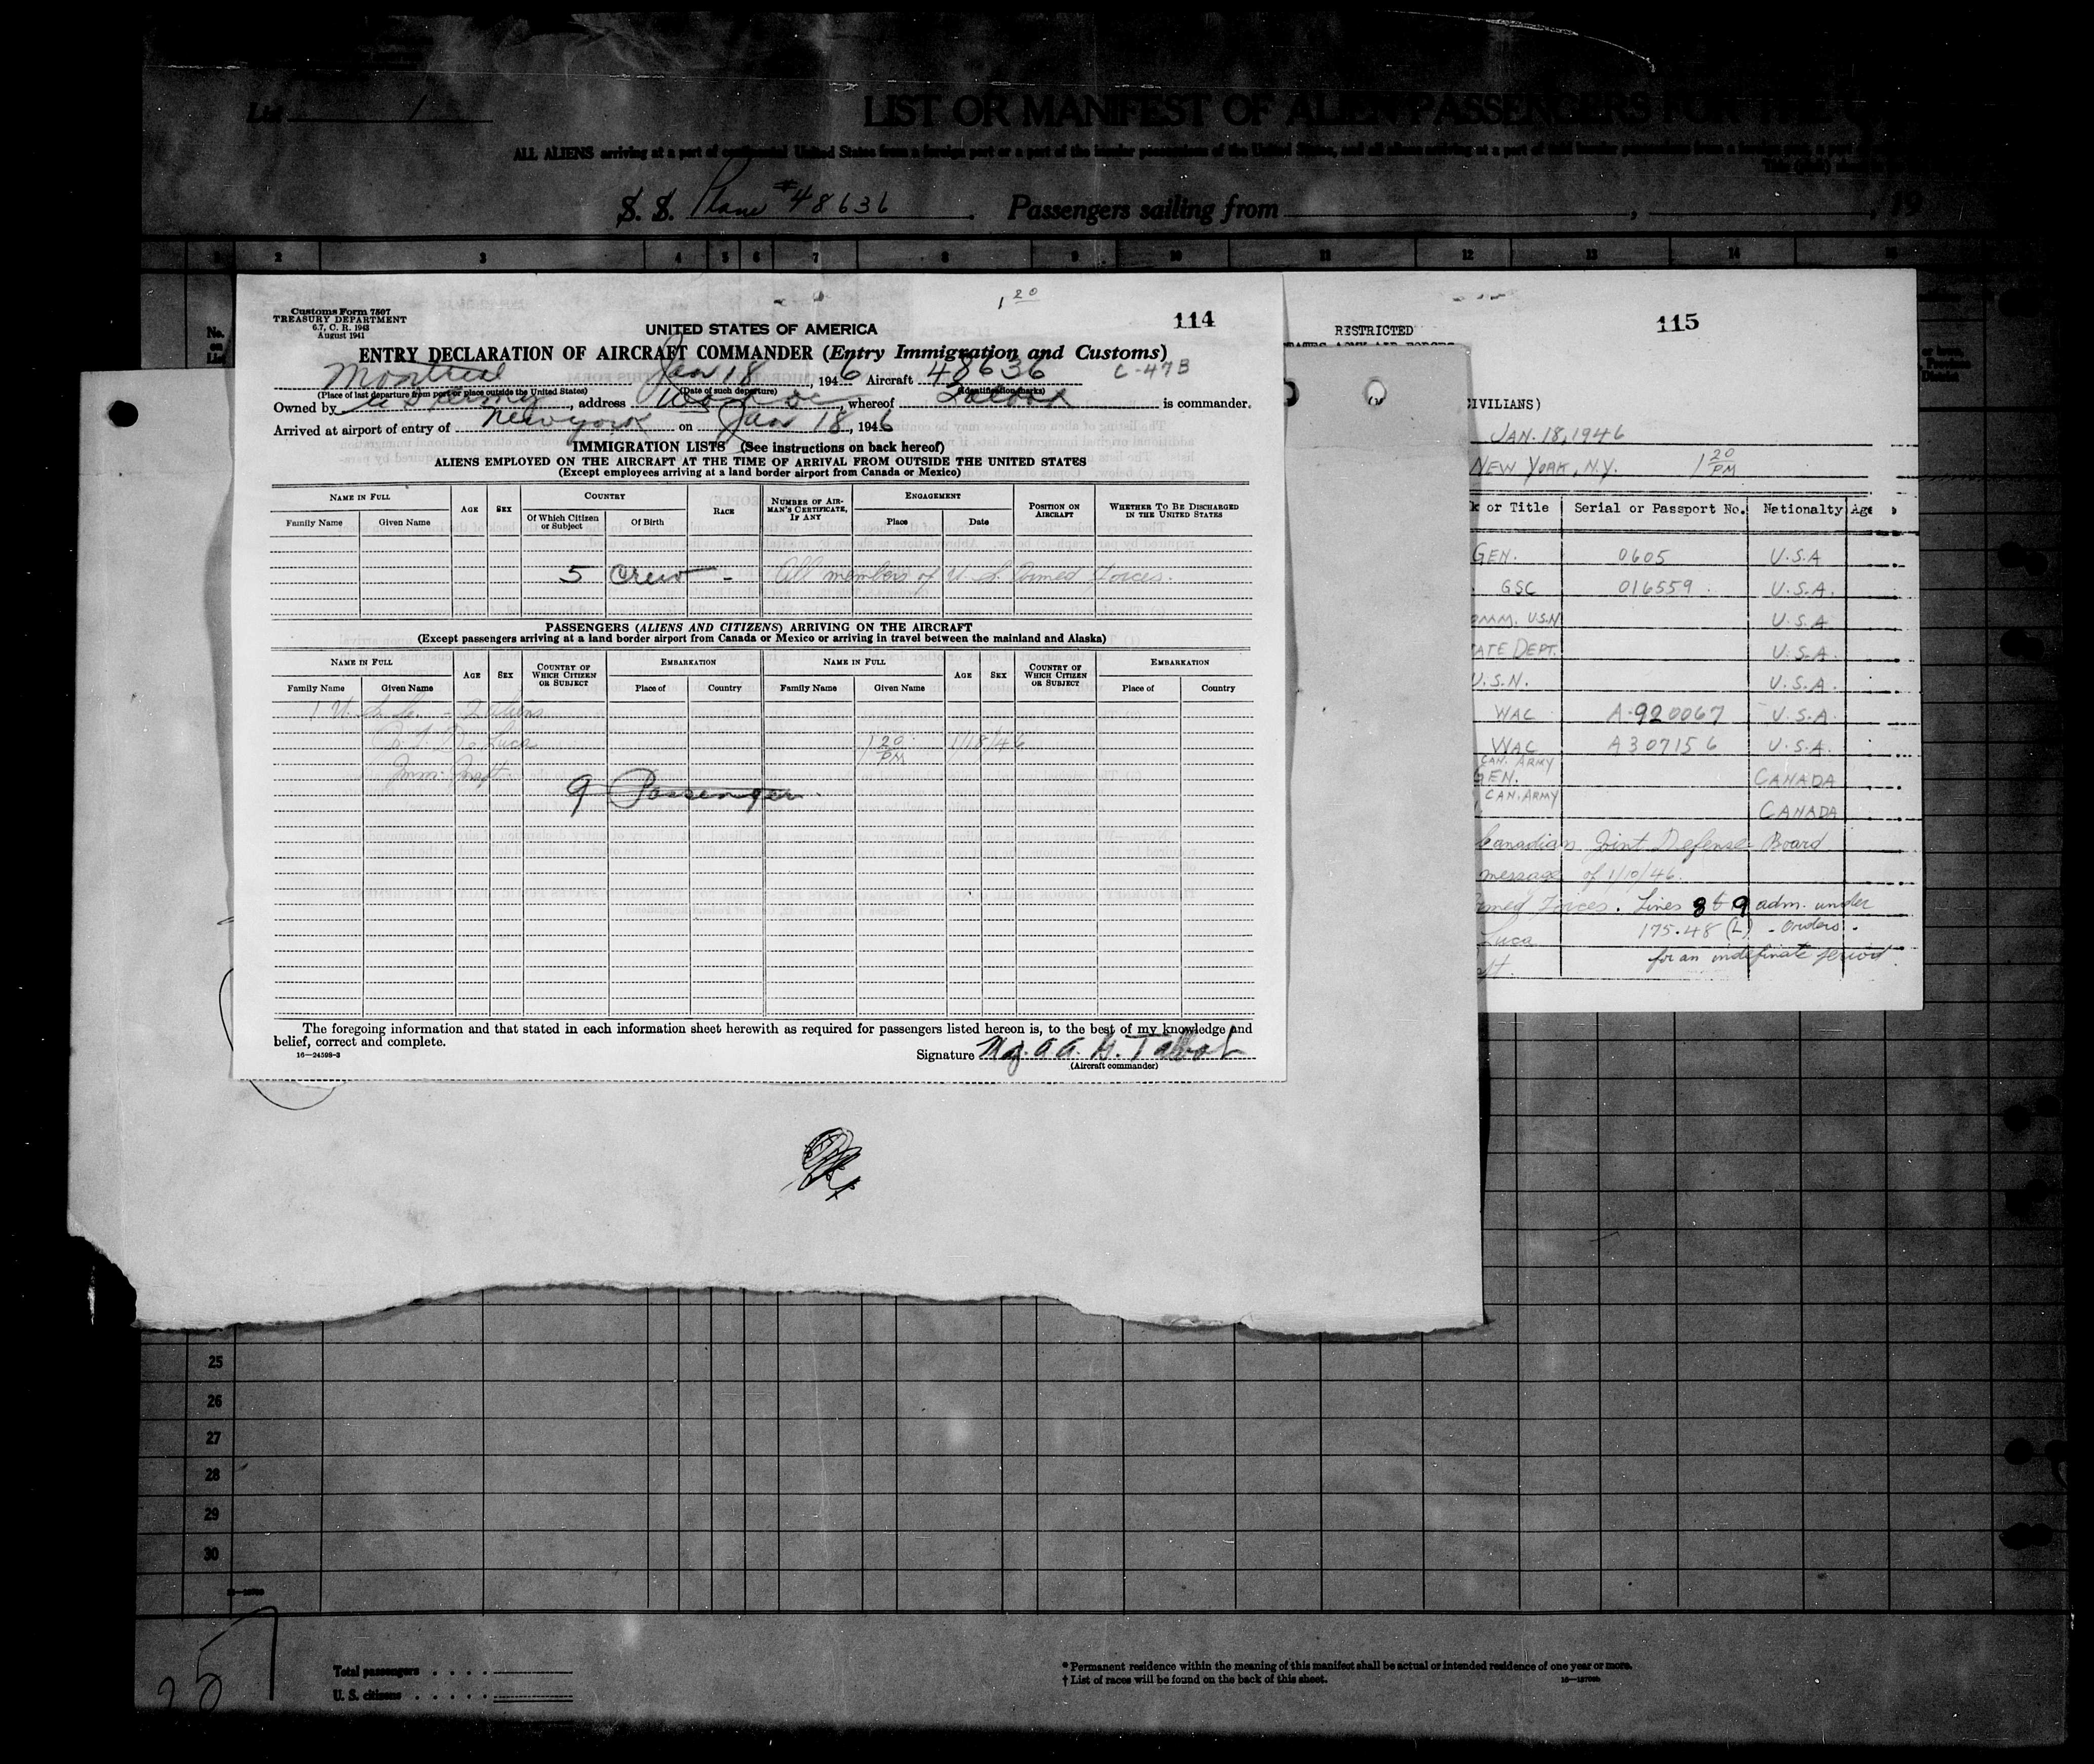 List 1
LIST OR MANIFEST OF ALIEN PASSENGERS FOR THE
ALL ALIENS arriving at a port of continental United States from a foreign port or a port of the insular possessions of the United States, and all aliens arriving at a port of said insular possessions from a foreign port, a port
S. S. Plane #48636 . Passengers sailing from , , 19
1 2 3 4 5 6 7 8 9 10 11 12 13 14 15
No.
on
List
Customs Form 7507
TREASURY DEPARTMENT
6.7, C. R. 1943
August 1941
1 20
114
UNITED STATES OF AMERICA
ENTRY DECLARATION OF AIRCRAFT COMMANDER (Entry Immigration and Customs)
Montreal Jan 18, 1946 Aircraft 48636 C-47B
(Place of last departure from port or place outside the United States) (Date of such departure) (Identification marks)
Owned by US Army, address , whereof Talbot is commander.
Arrived at airport of entry of New York on Jan 18, 1946
IMMIGRATION LISTS (See instructions on back hereof)
ALIENS EMPLOYED ON THE AIRCRAFT AT THE TIME OF ARRIVAL FROM OUTSIDE THE UNITED STATES
(Except employees arriving at a land border airport from Canada or Mexico)
NAME IN FULL AGE SEX COUNTRY RACE NUMBER OF AIRMAN'S CERTIFICATE, IF ANY ENGAGEMENT POSITION ON AIRCRAFT WHETHER TO BE DISCHARGED IN THE UNITED STATES
Family Name Given Name Of Which Citizen or Subject Of Birth Place Date
5 Crew - All members of U. S. Armed Forces.
PASSENGERS (ALIENS AND CITIZENS) ARRIVING ON THE AIRCRAFT
(Except passengers arriving at a land border airport from Canada or Mexico or arriving in travel between the mainland and Alaska)
NAME IN FULL AGE SEX COUNTRY OF WHICH CITIZEN OR SUBJECT EMBARKATION NAME IN FULL AGE SEX COUNTRY OF WHICH CITIZEN OR SUBJECT EMBARKATION
Family Name Given Name Place of Country Family Name Given Name Place of Country
- 2 aliens
De Luca 1 20 PM 1/18/46
Imm. Insp.
9 Passenger
The foregoing information and that stated in each information sheet herewith as required for passengers listed hereon is, to the best of my knowledge and
belief, correct and complete.
16—24598-3
Signature Maj. A. G. Talbot
(Aircraft commander)
RESTRICTED
115
STATES ARMY AIR FORCES
CIVILIANS)
JAN. 18, 1946
NEW YORK, N.Y. 1 20 PM
k or Title Serial or Passport No. Nationality Age
GEN. 0605 U.S.A
GSC 016559 U.S.A.
OMM. U.S.N U.S.A
ATE DEPT. U.S.A.
U.S.N. U.S.A.
WAC A-920067 U.S.A.
WAC A307156 U.S.A.
CAN. ARMY
GEN. CANADA
CAN. ARMY
CANADA
Canadian Joint Defense Board
message of 1/10/46.
Armed Forces. Lines 8 & 9 adm. under
175.48 (L) - Orders.
Luca
for an indefinate period
25
26
27
28
29
30
257
Total passengers . . . .
U. S. citizens . . . . .
* Permanent residence within the meaning of this manifest shall be actual or intended residence of one year or more.
† List of races will be found on the back of this sheet.